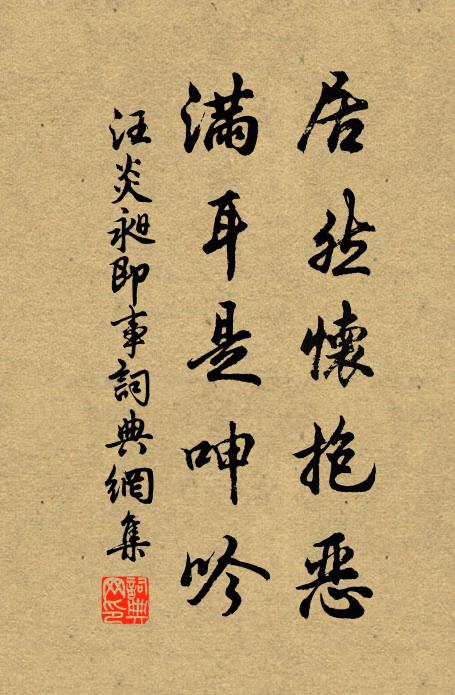 居然懷抱惡
滿耳是呻吟
汪炎昶即事詞典網集
詞典網印